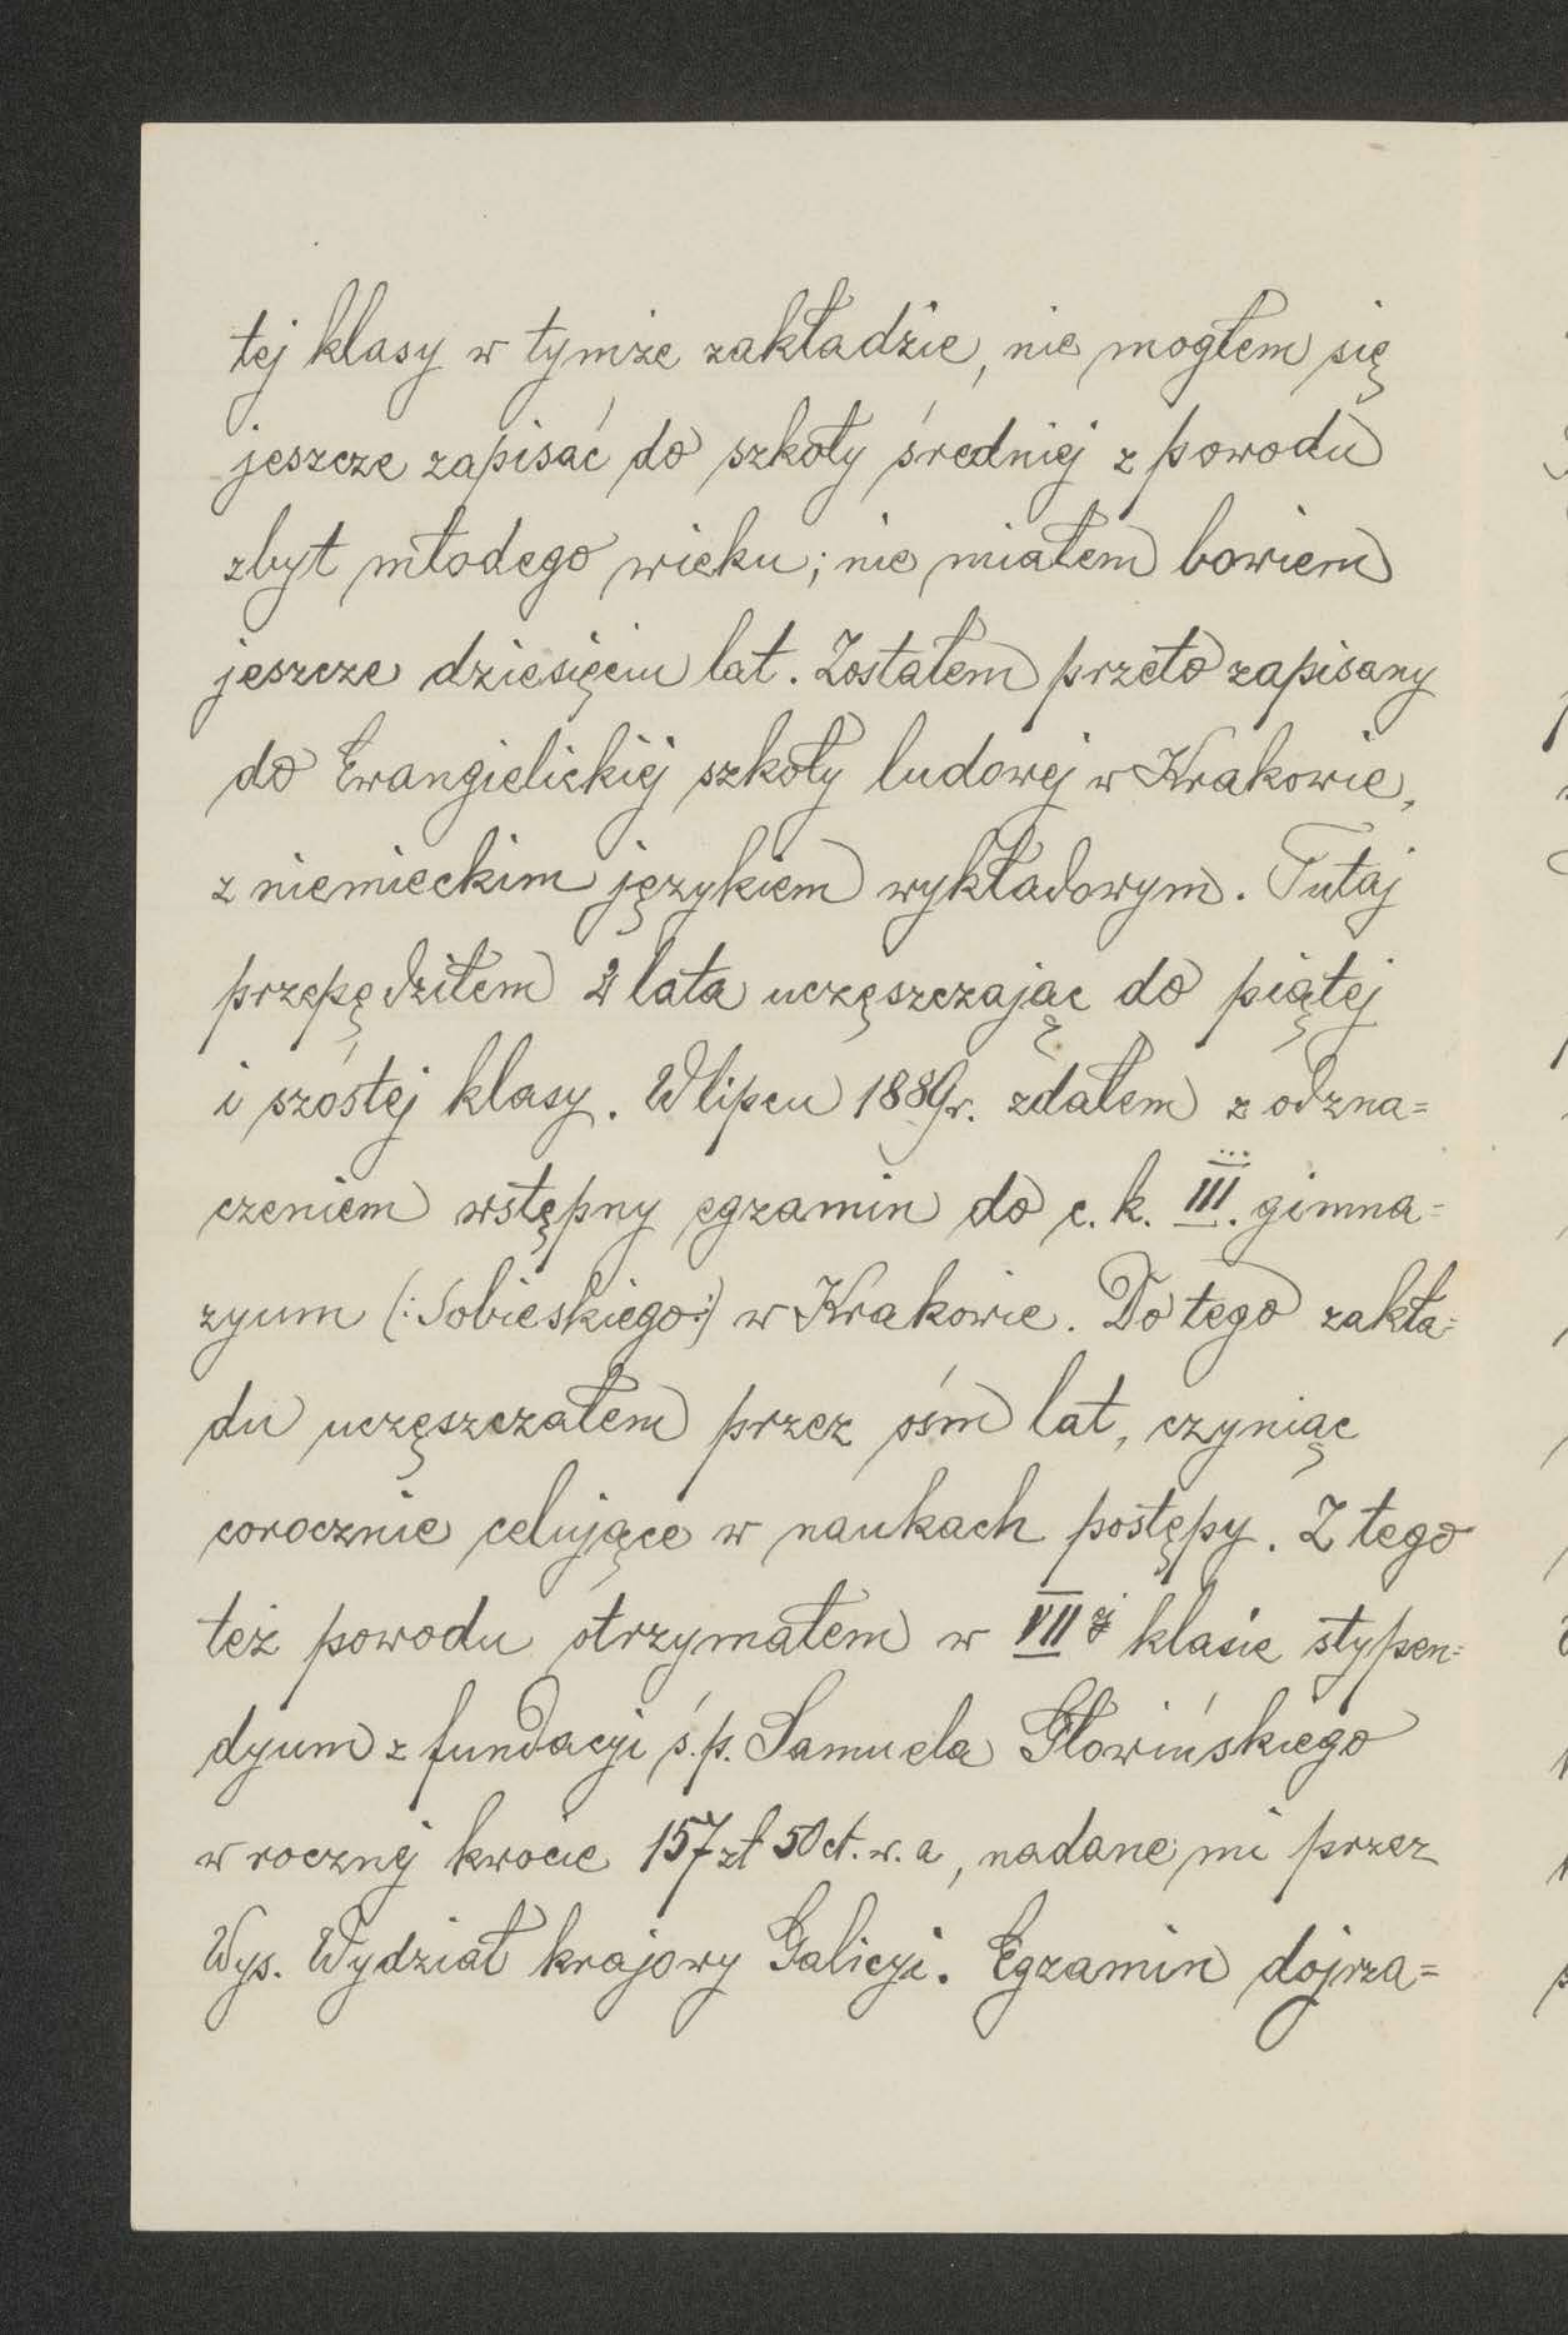 tej klasy w tymże zakładzie, nie mogłem się
jeszcze zapisać do szkoły średniej z powodu
zbyt młodego wieku; nie miałem bowiem
jeszcze dziesięciu lat. Zostałem przeto zapisany
do Ewangielickiej szkoły ludowej w Krakowie,
z niemieckim językiem wykładowym. Tutaj
przepędziłem 2 lata uczęszczając do piątej
i szóstej klasy. W lipcu 1889 r. zdałem z odzna=
czeniem wstępny egzamin do c. k. III. gimna=
zyum (:Sobieskiego:) w Krakowie. Do tego zakła=
du uczęszczałem przez ośm lat, czyniąc
corocznie celujące w naukach postępy. Z tego
też powodu otrzymałem w VII ej klasie stypen=
dyum z fundacyi ś.p. Samuela Głowińskiego
w rocznej kwocie 157 zł 50 ct. w. a, nadane mi przez
Wys. Wydział krajowy Galicyi. Egzamin dojrza=